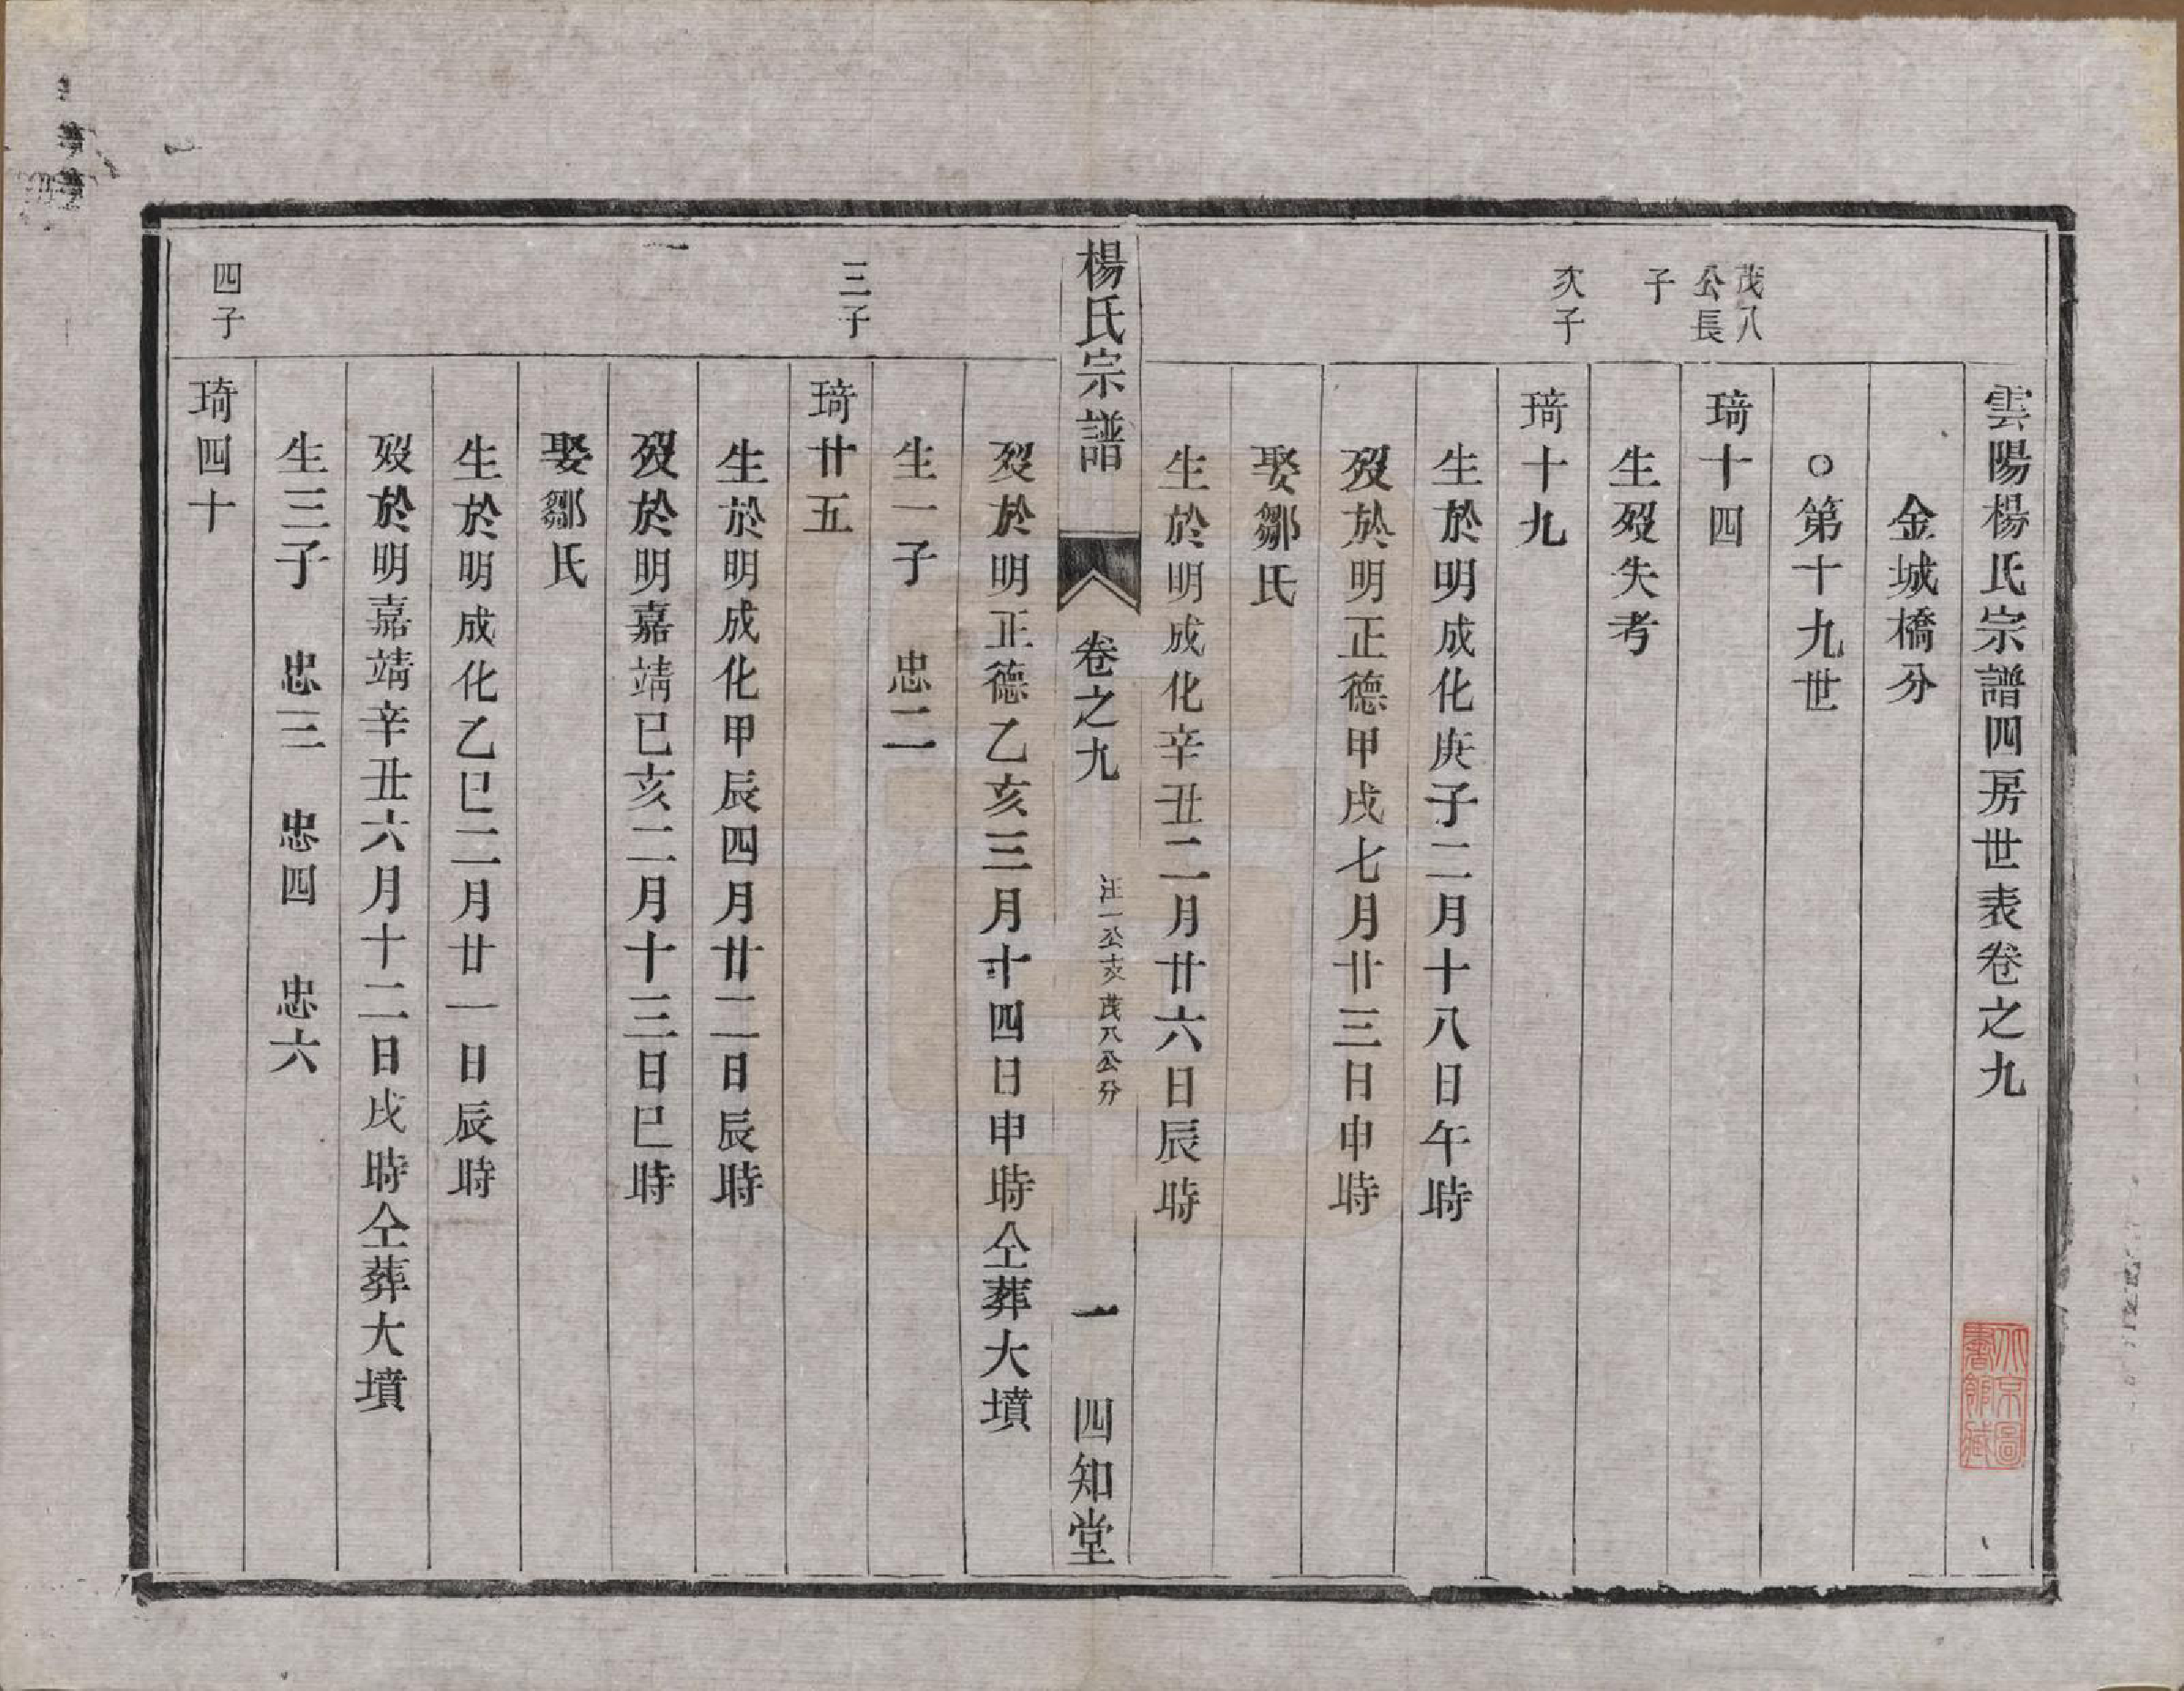 雲陽楊氏宗譜四房世表卷之九
金城橋分
○第十九世
茂八公長子
琦十四
生歿失考
次子
琦十九
生於明成化庚子二月十八日午時
歿於明正德甲戌七月廿三日申時
娶鄒氏
生於明成化辛丑二月廿六日辰時
楊氏宗譜
卷之九
汪一公支茂八公分
一
四知堂
歿於明正德乙亥三月十四日申時仝葬大墳
生一子　忠二
三子
琦廿五
生於明成化甲辰四月廿二日辰時
歿於明嘉靖己亥二月十三日巳時
娶鄒氏
生於明成化乙巳二月廿一日辰時
歿於明嘉靖辛丑六月十二日戌時仝葬大墳
生三子　忠三　忠四　忠六
四子
琦四十